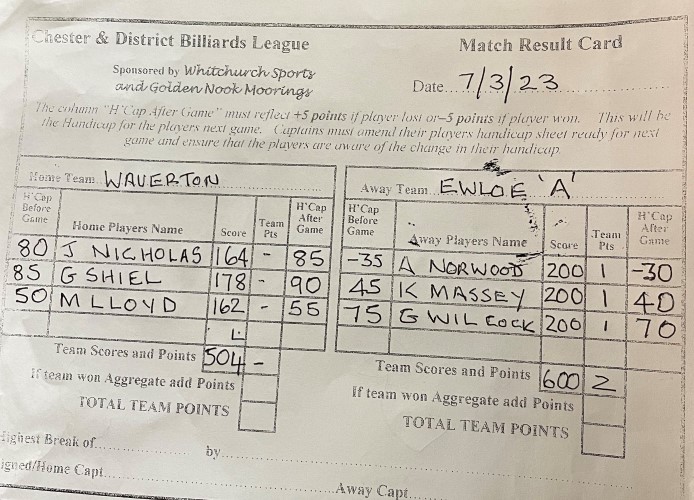 Chester & District Billiards League
Match Result Card
Sponsored by Whitchurch Sports
and Golden Nook Moorings
Date... 7/3/23
The column "H'Cap After Game" must reflect +5 points if player lost or -5 points if player won. This will be
the Handicap for the players next game. Captains must amend their players handicap sheet ready for next
game and ensure that the players are aware of the change in their handicap.
Home Team WAVERTON
Away Team EWLOE 'A'
H'Cap Before Game Home Players Name Score Team Pts H'Cap After Game
80 J NICHOLAS 164 - 85
85 G SHIEL 178 - 90
50 M LLOYD 162 - 55
Team Scores and Points 504 -
If team won Aggregate add Points
TOTAL TEAM POINTS
H'Cap Before Game Away Players Name Score Team Pts H'Cap After Game
-35 A NORWOOD 200 1 -30
45 K MASSEY 200 1 40
75 G WILCOCK 200 1 70
Team Scores and Points 600 2
If team won Aggregate add Points
TOTAL TEAM POINTS
Highest Break of by
Signed/Home Capt. Away Capt.